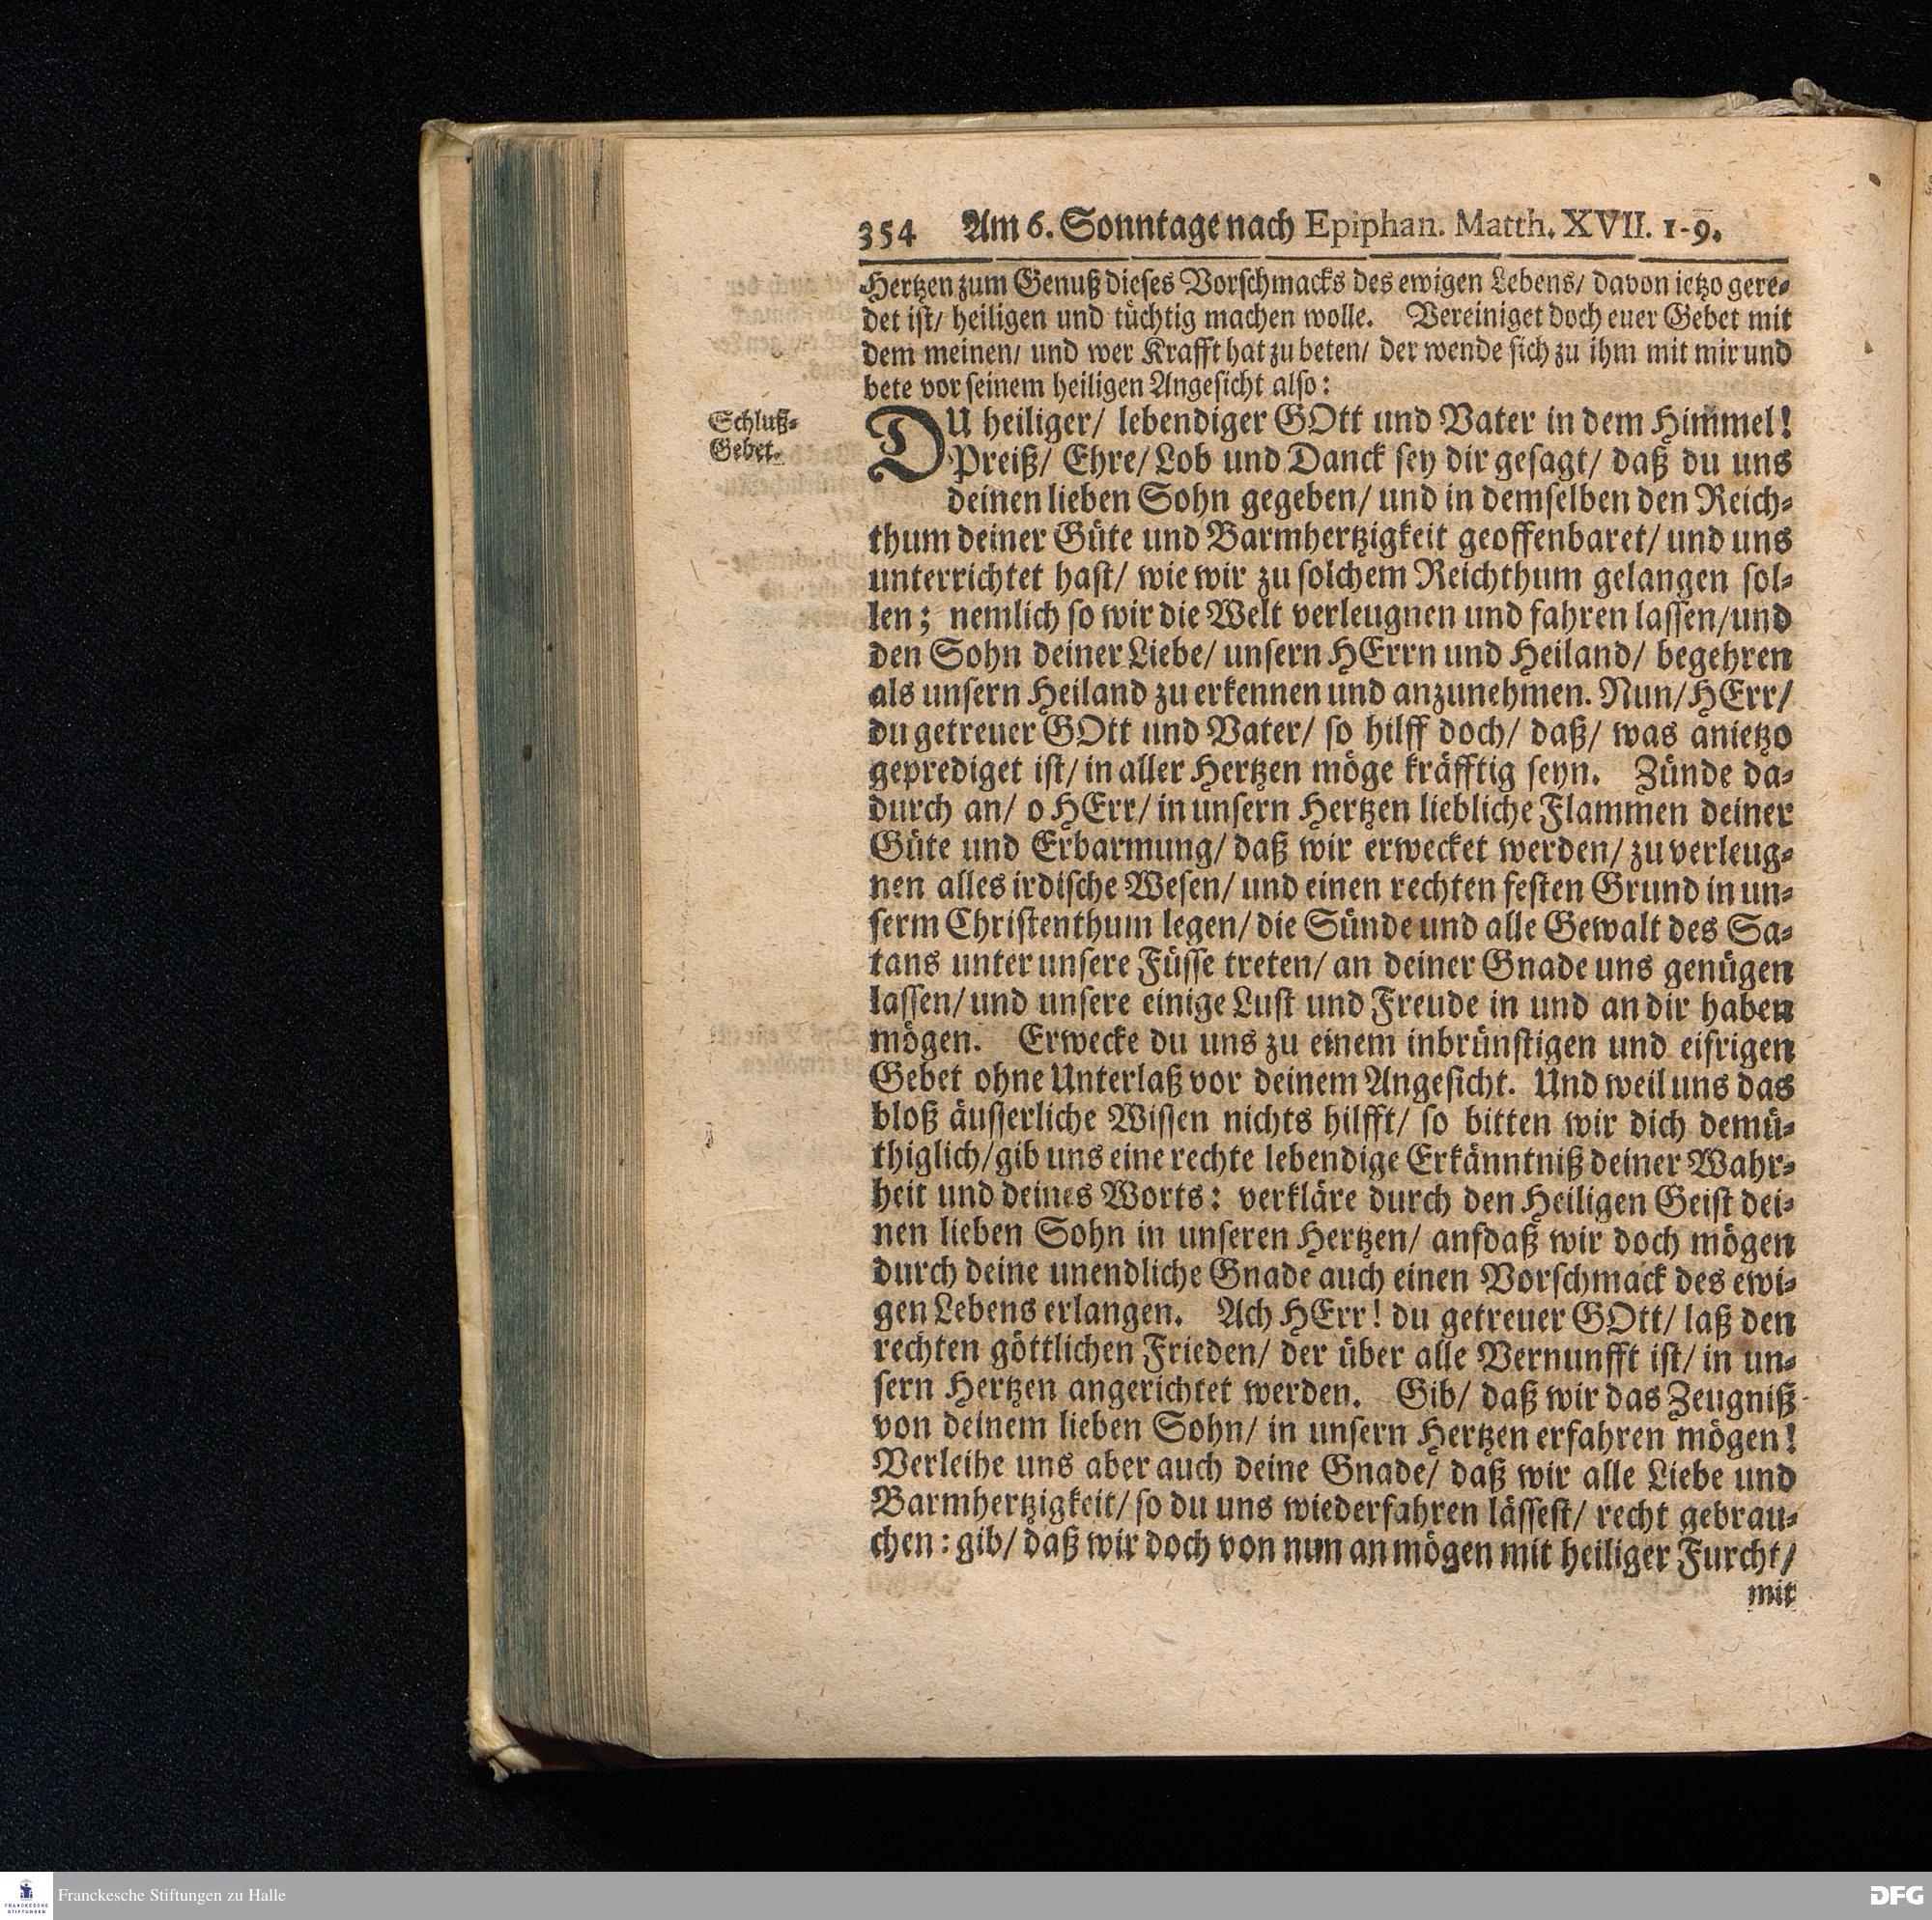 354 Am 6. Sonntage nach Epiphan. Matth. XVII. 1-9.
Hertzen zum Genuß dieses Vorschmacks des ewigen Lebens/ davon ietzo gere-
det ist/ heiligen und tüchtig machen wolle. Vereiniget doch euer Gebet mit
dem meinen/ und wer Krafft hat zu beten/ der wende sich zu ihm mit mir und
bete vor seinem heiligen Angesicht also:
Schluß-
Gebet.
DU heiliger/ lebendiger GOtt und Vater in dem Himmel!
Preiß/ Ehre/ Lob und Danck sey dir gesagt/ daß du uns
deinen lieben Sohn gegeben/ und in demselben den Reich-
thum deiner Güte und Barmhertzigkeit geoffenbaret/ und uns
unterrichtet hast/ wie wir zu solchem Reichthum gelangen sol-
len; nemlich so wir die Welt verleugnen und fahren lassen/und
den Sohn deiner Liebe/ unsern HErrn und Heiland/ begehren
als unsern Heiland zu erkennen und anzunehmen. Nun/ HErr/
du getreuer GOtt und Vater/ so hilff doch/ daß/ was anietzo
geprediget ist/ in aller Hertzen möge kräfftig seyn. Zünde da-
durch an/ o HErr/ in unsern Hertzen liebliche Flammen deiner
Güte und Erbarmung/ daß wir erwecket werden/ zu verleug-
nen alles irdische Wesen/ und einen rechten festen Grund in un-
serm Christenthum legen/ die Sünde und alle Gewalt des Sa-
tans unter unsere Füsse treten/ an deiner Gnade uns genügen
lassen/ und unsere einige Lust und Freude in und an dir haben
mögen. Erwecke du uns zu einem inbrünstigen und eifrigen
Gebet ohne Unterlaß vor deinem Angesicht. Und weil uns das
bloß äusserliche Wissen nichts hilfft/ so bitten wir dich demü-
thiglich/gib uns eine rechte lebendige Erkänntniß deiner Wahr-
heit und deines Worts: verkläre durch den Heiligen Geist dei-
nen lieben Sohn in unseren Hertzen/ anfdaß wir doch mögen
durch deine unendliche Gnade auch einen Vorschmack des ewi-
gen Lebens erlangen. Ach HErr! du getreuer GOtt/ laß den
rechten göttlichen Frieden/ der über alle Vernunfft ist/ in un-
sern Hertzen angerichtet werden. Gib/ daß wir das Zeugniß
von deinem lieben Sohn/ in unsern Hertzen erfahren mögen!
Verleihe uns aber auch deine Gnade/ daß wir alle Liebe und
Barmhertzigkeit/ so du uns wiederfahren lässest/ recht gebrau-
chen: gib/ daß wir doch von nun an mögen mit heiliger Furcht/
mit
FRANCKESCHE
STIFTUNGEN
Franckesche Stiftungen zu Halle
DFG